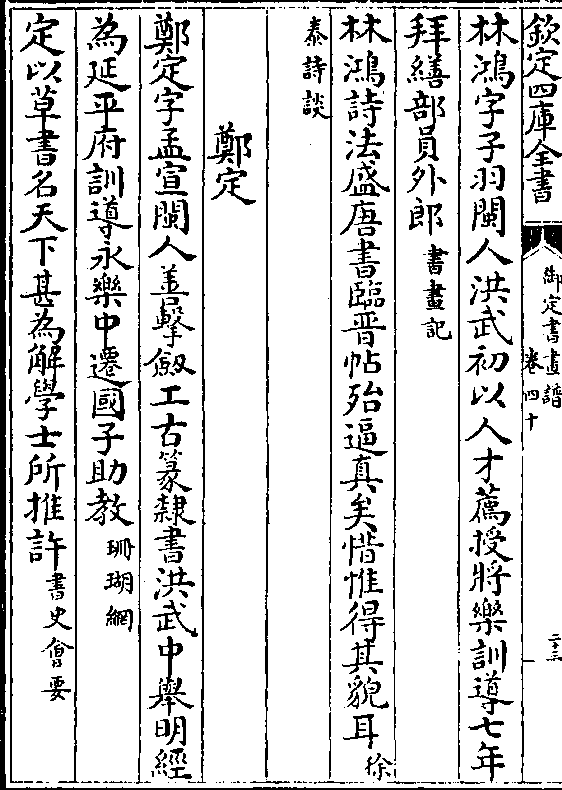 欽定四庫全書
御定書畫譜
卷四十
二十三
林鴻字子羽閩人洪武初以人才薦授將樂訓導七年
拜繕部員外郎書畫記
林鴻詩法盛唐書臨晉帖殆逼真矣惜惟得其貌耳徐
泰詩談
鄭定
鄭定字孟宣閩人善擊劔工古篆隸書洪武中舉明經
為延平府訓導永樂中遷國子助教珊瑚網
定以草書名天下甚為解學士所推許書史會要